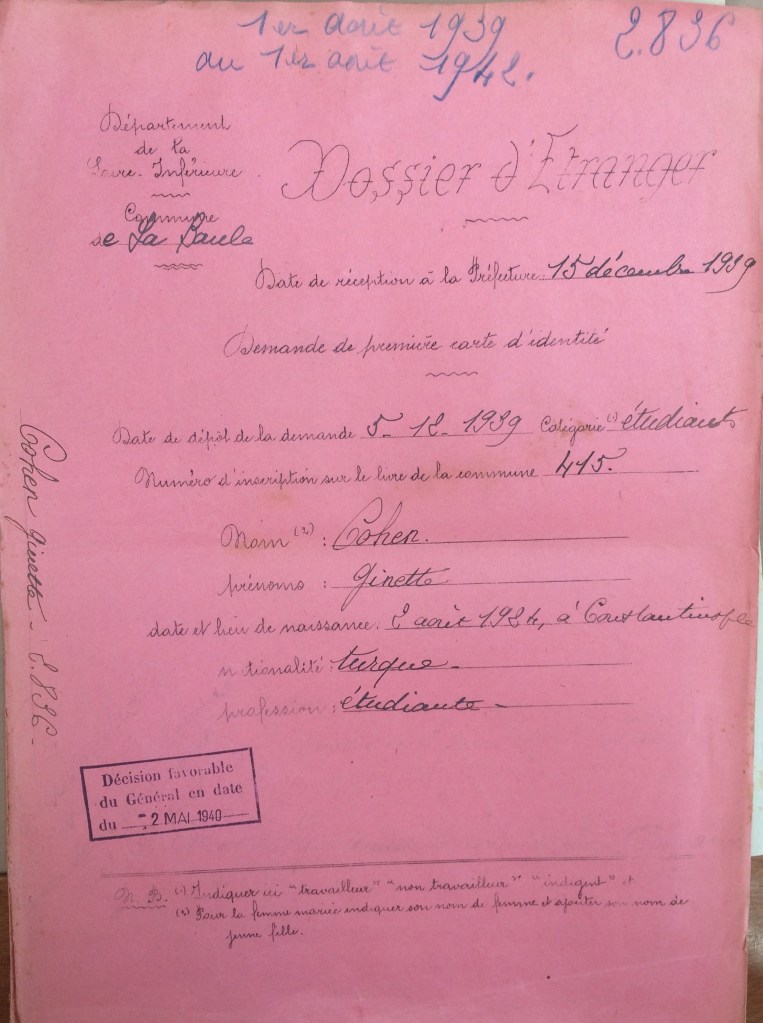 1er août 1939
au 1er août 1942.
2.836
Département
de la
Loire-Inférieure
Commune
de La Baule
Dossier d'Etranger
Date de réception à la Préfecture: 15 décembre 1939
Demande de première carte d'identité
Date de dépôt de la demande 5-12-1939 Catégorie (1) étudiante
Numéro d'inscription sur le livre de la commune 415.
Nom (2) : Cohen.
prénoms : Ginette
date et lieu de naissance: 2 août 1924, à Constantinople
n tionalité : turque -
profession : étudiante -
Cohen Ginette - 2.836 -
Décision favorable
du Général en date
du - 2 MAI 1940
N.B. (1) Indiquer ici "travailleur" "non travailleur" "indigent" et
(2) Pour la femme mariée indiquer son nom de femme et ajouter son nom de
jeune fille.